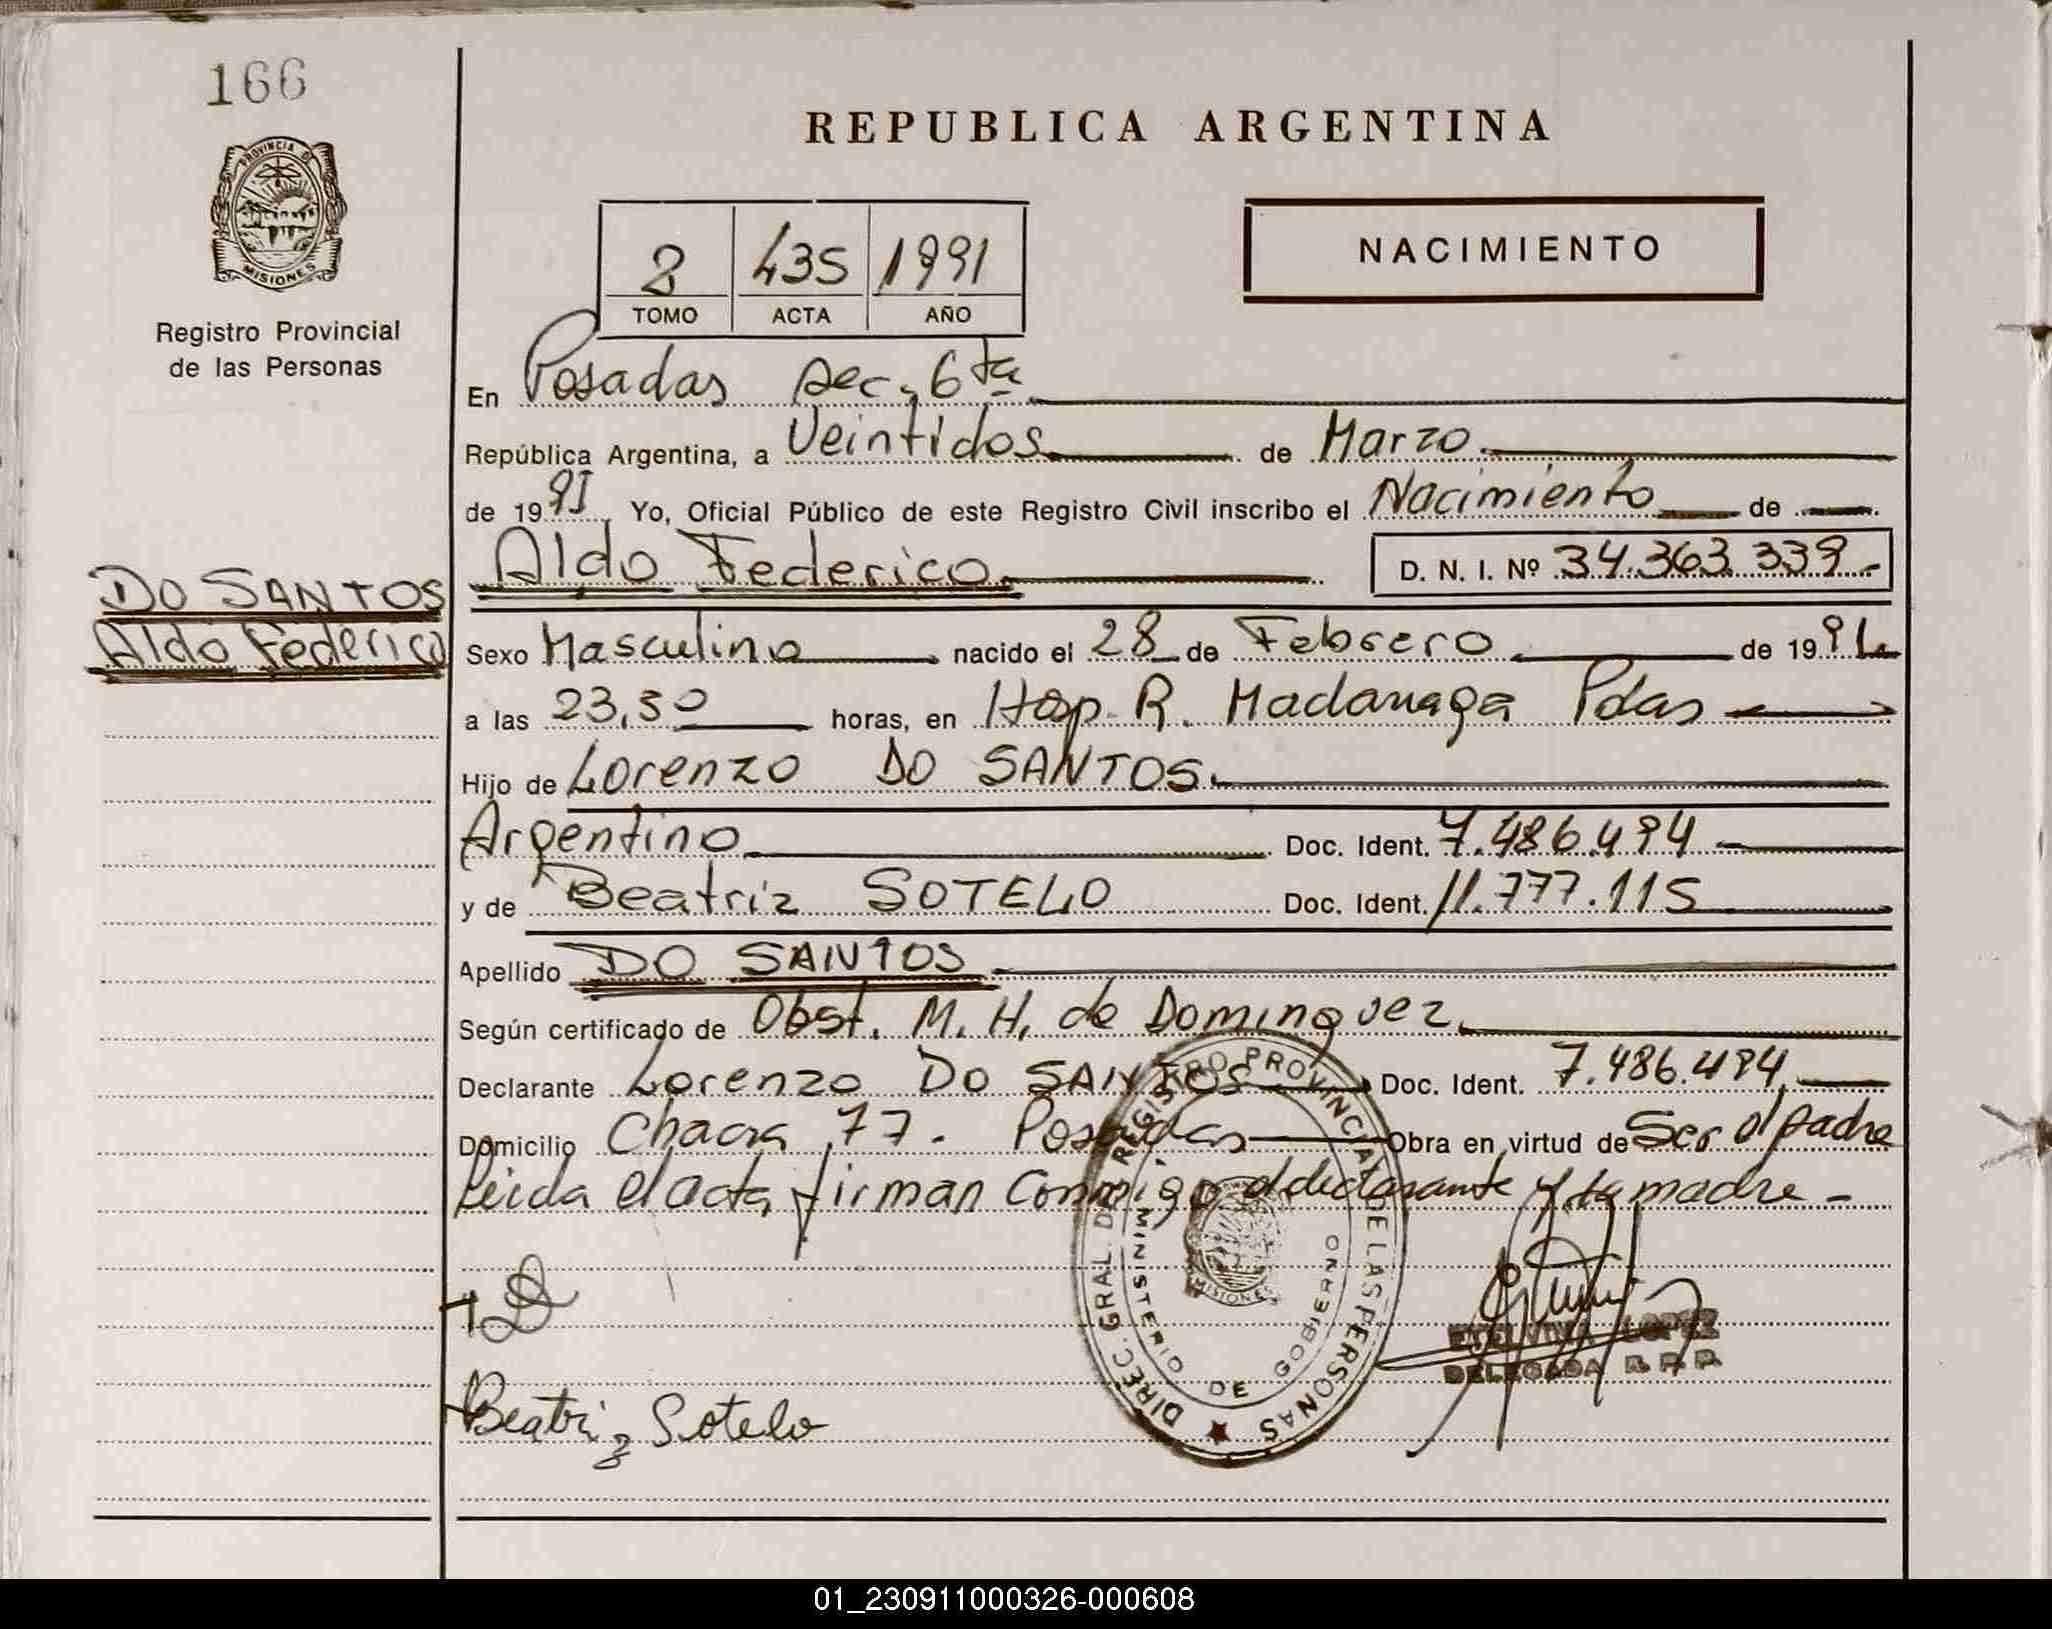 166
PROVINCIA DE
MISIONES
Registro Provincial
de las Personas
REPUBLICA ARGENTINA
NACIMIENTO
2 435 1991
TOMO ACTA AÑO
En Posadas sec. 6ta
República Argentina, a Veintidos de Marzo
de 1991 Yo, Oficial Público de este Registro Civil inscribo el Nacimiento de
Aldo Federico D. N. I. Nº 34.363.339-
DO SANTOS
Aldo Federico
Sexo Masculino nacido el 28 de Febrero de 1991
a las 23,30 horas, en Hosp. R. Madariaga Pdas
Hijo de Lorenzo DO SANTOS
Argentino Doc. Ident. 7.486.494
y de Beatriz SOTELO Doc. Ident. 11.777.115
Apellido DO SANTOS
Según certificado de Obst. M. H. de Dominguez
Declarante Lorenzo DO SANTOS Doc. Ident. 7.486.494
Domicilio Chacra 77. Posadas Obra en virtud de Ser el padre
Leida el acta firman conmigo el declarante y la madre -
DIREC. GRAL. DEL REGISTRO PROVINCIAL DE LAS PERSONAS
MINISTERIO DE GOBIERNO
MISIONES
ETELVINA LOPEZ
DELEGADA R. P. P.
Beatriz Sotelo
01_230911000326-000608